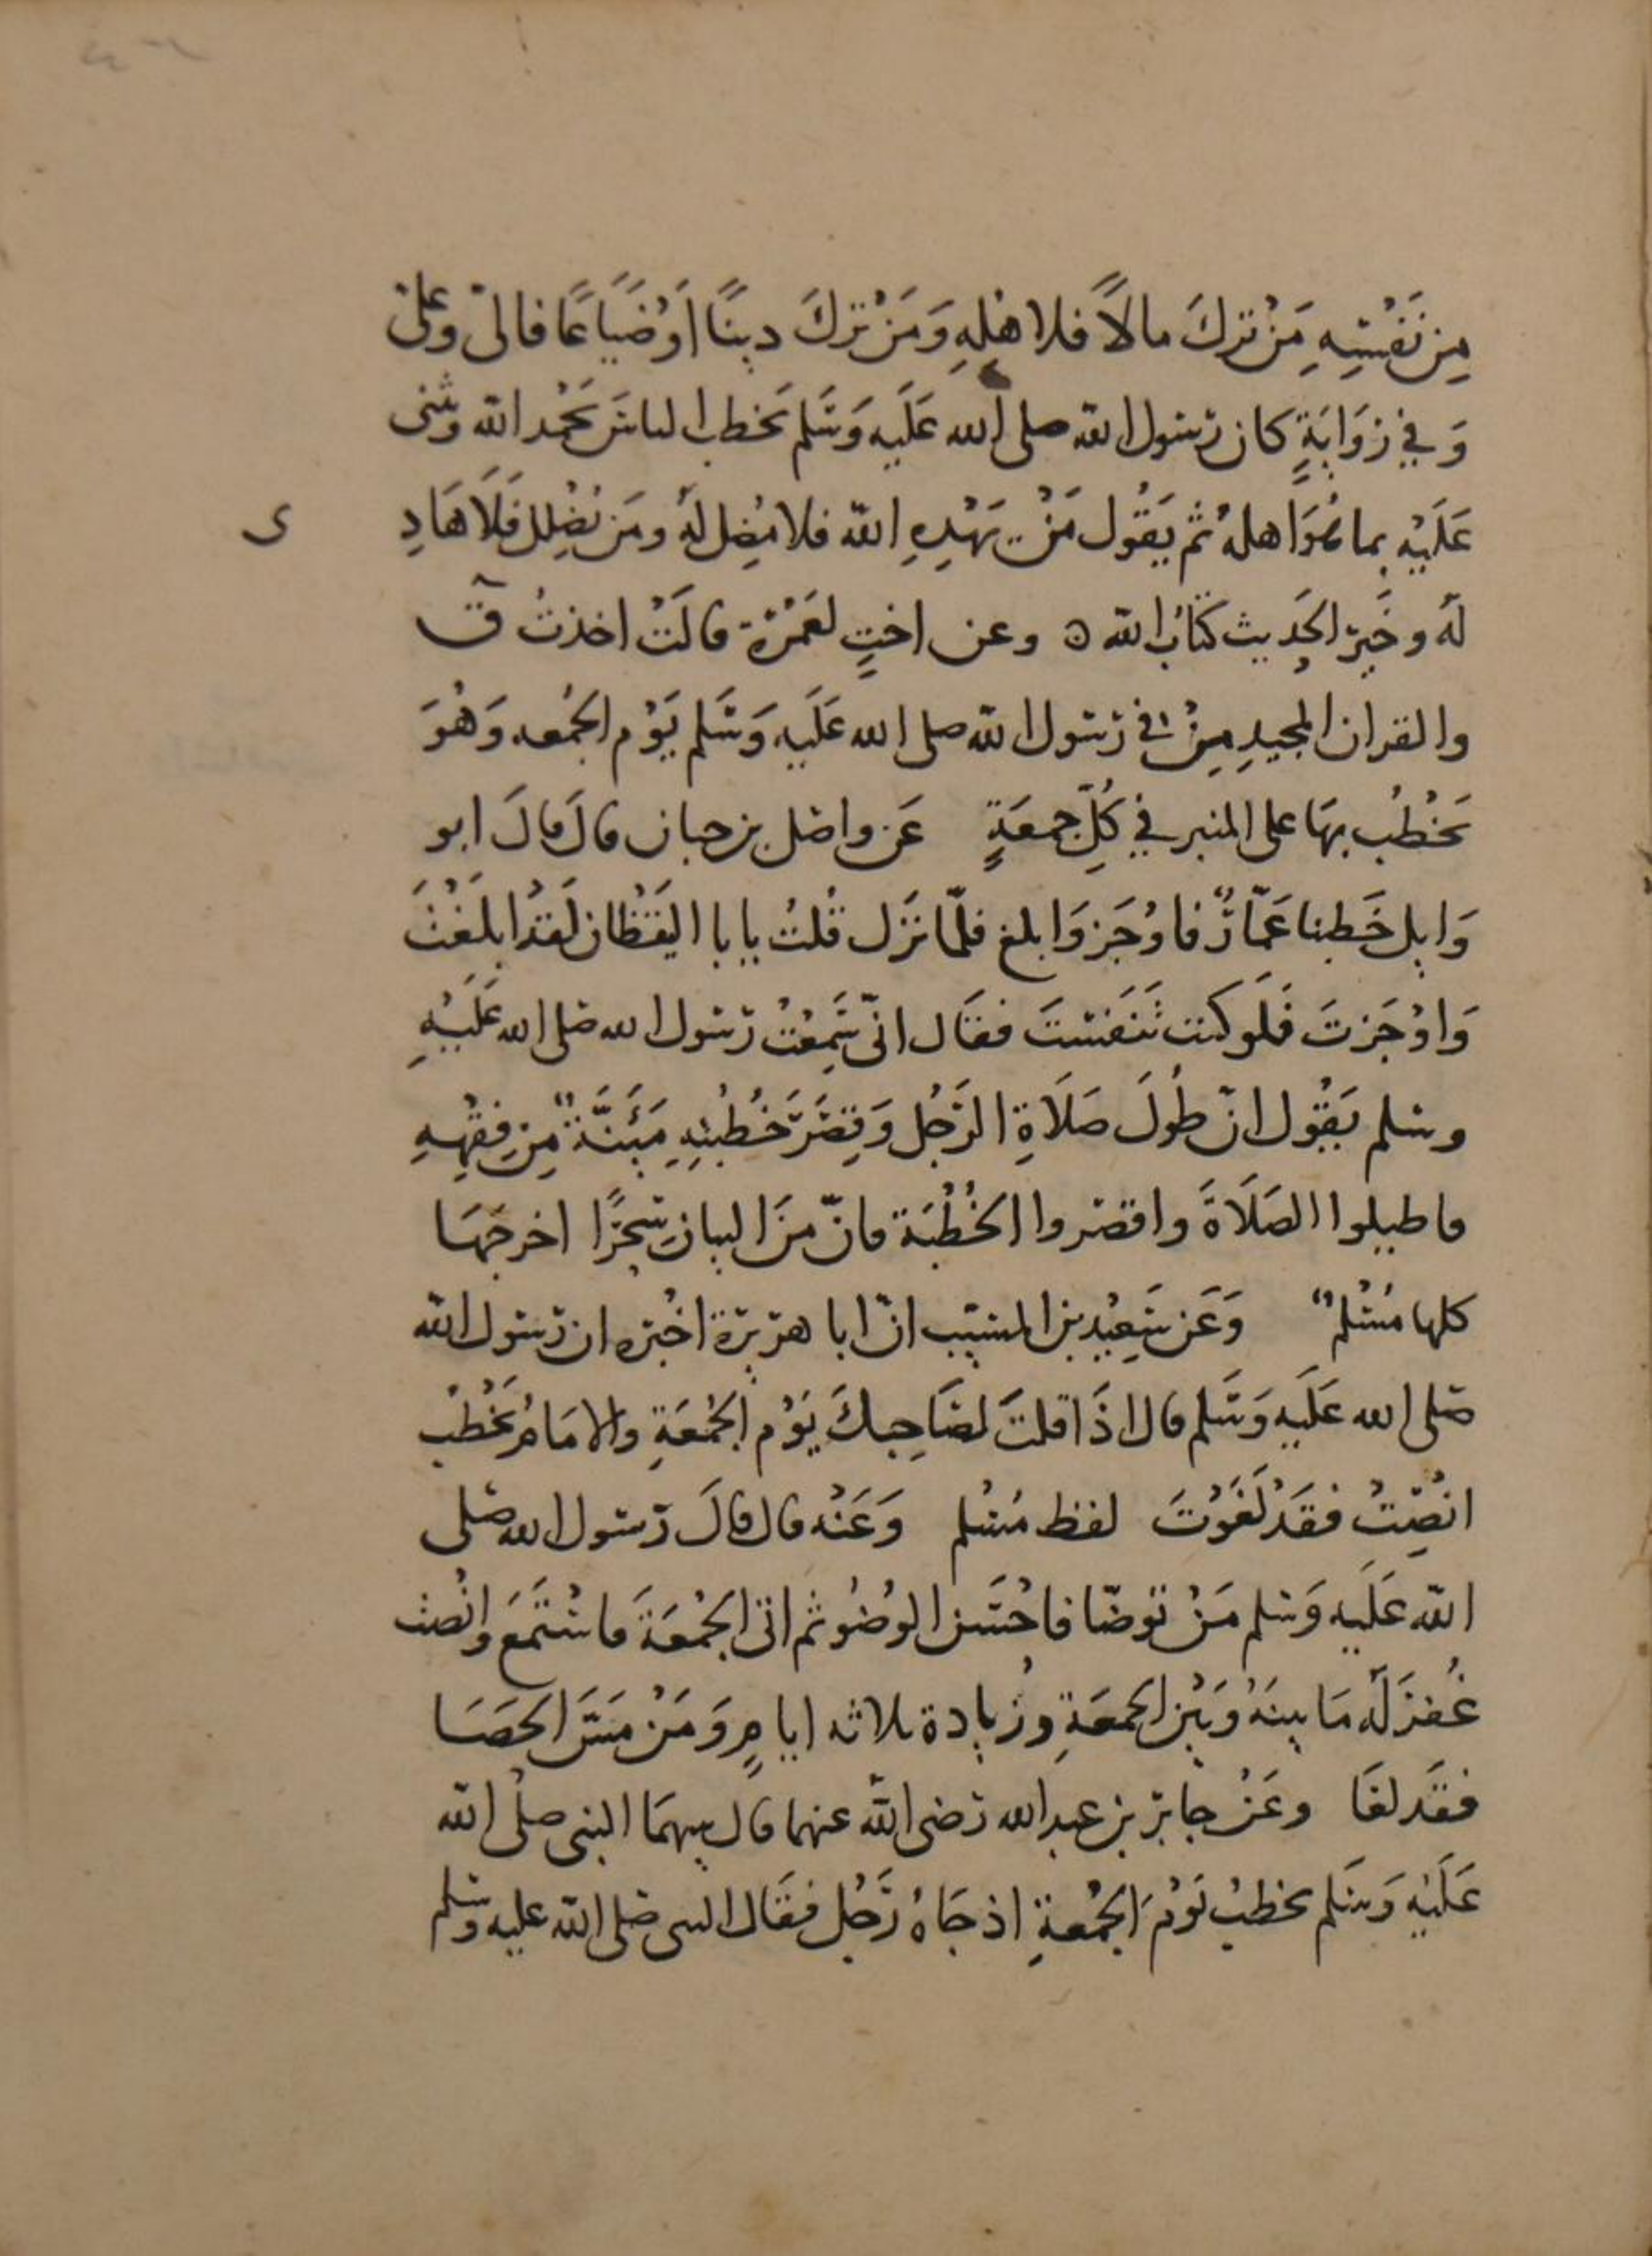 مِن نَفْسِهِ مَنْ تركَ مالاً فلاهْلِهِ وَمَنْ تركَ دينًا اَوْ ضَيَاعًا فالىّ وعلىّ
وَفي رِوَايَةٍ كان رسُول الله صلى الله عَلَيه وَسَلم يَخطب الناسَ يَحْمد الله ويثنى
عَلَيْه بما هُوَ اهلهُ ثم يَقُول مَنْ يَهْدِهِ الله فلا مُضِل لهُ ومَن يُضْلِل فَلَا هَادِ
ى
لهُ وخَير الحَدِيث كتَابُ الله ه وعن اختٍ لعَمْرَة قالَتْ اخذتُ قٓ
والقران المجيدِ مِنْ في رسول الله صلى الله عَلَيه وَسَلم يَوْم الجُمُعه وَهُوَ
يَخْطُب بهَا على المنبر في كُلِّ جمعَةٍ عَن واصل بن حبان قال قالَ ابو
وَايل خَطبنا عَمَّارٌ فاوْجَز وَابلغ فلمّا نَزَل قُلتُ يابا اليَقْظان لَقدْ ابلَغْتَ
وَاوْجَزتَ فَلَو كنت تَنَفستَ فقَال انّى سَمِعْتُ رسول الله صلى الله عَلَيْهِ
وسلم يَقُول انّ طُولَ صَلَاةِ الرّجُل وَقِصَرَ خُطْبَتِهِ مَئنَّةٌ مِن فِقْهِهِ
فاطيلوا الصَلَاةَ واقصروا الخُطْبَة فانّ مِنَ البيان سِحْرًا اخرجهَا
كلها مُسْلمٌ وَعَن سَعِيْد بن المسَيّب انّ ابا هرَيرَة اخْبَره ان رَسُول الله
صَلى الله عَلَيه وَسَلم قال اذَا قلتَ لصَاحِبكَ يَوْم الجُمْعَةِ والامَامُ يَخْطُب
انْصِتْ فقَدْ لَغَوْتَ لفظ مُسْلم وَعَنْه قال قالَ رَسُول الله صَلى
الله عَلَيه وَسَلم مَنْ توضّا فاحْسَن الوُضُو ثم اتى الجُمْعَةَ فاسْتَمَعَ وانْصت
غُفرَ لَهُ مَا بينَهُ وَبَيْن الجمعَةِ وزيادة ثلاثه ايامٍ وَمَنْ مَسَّ الحَصَا
فقَد لغَا وعَنْ جابر بن عبد الله رَضى الله عنهما قال بينمَا النبى صلى الله
عَلَيْه وَسَلم يخطبُ يَوْمَ الجُمْعةِ اذ جَاهُ رَجُل فقَال النبى صلى الله عليه وسلم